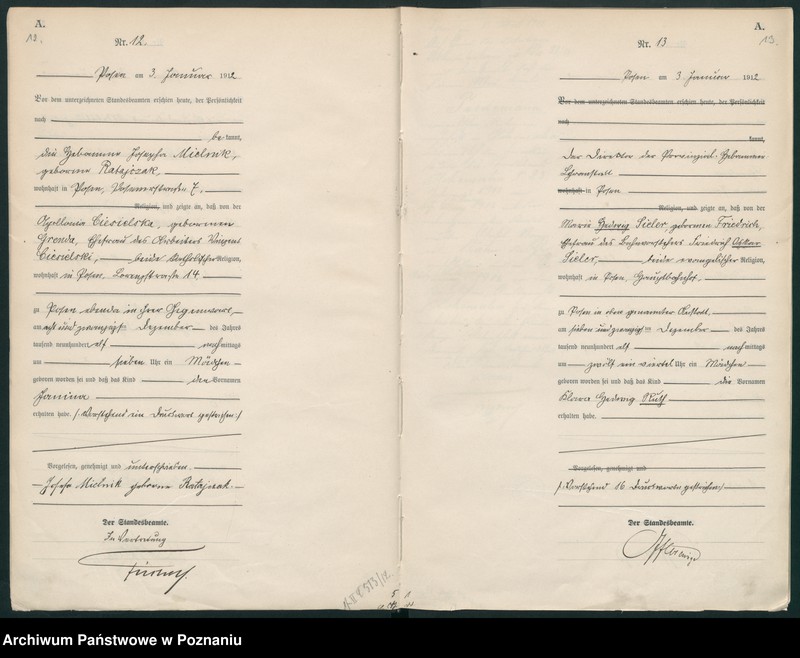 A.
12.
Nr. 12.
Posen am 3. Januar 1912
Vor dem unterzeichneten Standesbeamten erschien heute, der Persönlichkeit
nach
be kannt,
die Hebamme Josepha Mielnik,
geborne Ratajczak,
wohnhaft in Posen, Posenerstraße 7.
Religion, und zeigte an, daß von der
Apollonia Ciesielska, geborenen
Grenda, Ehefrau des Arbeiters Vinzent
Ciesielski, beide katholischer Religion,
wohnhaft in Posen, Lorenzstraße 14.
zu Posen ebenda in ihrer Gegenwart
am acht und zwanzigsten Dezember des Jahres
tausend neunhundert elf nachmittags
um sieben Uhr ein Mädchen
geboren worden sei und daß das Kind den Vornamen
Janina
erhalten habe. /: Vorstehend ein Druckwort gestrichen :/
Vorgelesen, genehmigt und unterschrieben.
Josefa Mielnik geborne Ratajczak.
Der Standesbeamte.
In Vertretung
A.
13.
Nr. 13
Posen am 3. Januar 1912
Vor dem unterzeichneten Standesbeamten erschien heute, der Persönlichkeit
nach
kannt,
Der Direktor der Provinzial-Hebammen
Lehranstalt
wohnhaft in Posen
Religion, und zeigte an, daß von der
Marie Hedwig Sieler, geborenen Friedrich,
Ehefrau des Bahnvorstehers Friedrich Oskar
Sieler, beide evangelischer Religion,
wohnhaft in Posen, Hauptbahnhof.
zu Posen in oben genannter Anstalt
am sieben und zwanzigsten Dezember des Jahres
tausend neunhundert elf nachmittags
um zwölf ein viertel Uhr ein Mädchen
geboren worden sei und daß das Kind die Vornamen
Klara Hedwig Ruth
erhalten habe.
Vorgelesen, genehmigt und
/: Vorstehend 16 Druckworte gestrichen :/
Der Standesbeamte.
Archiwum Państwowe w Poznaniu